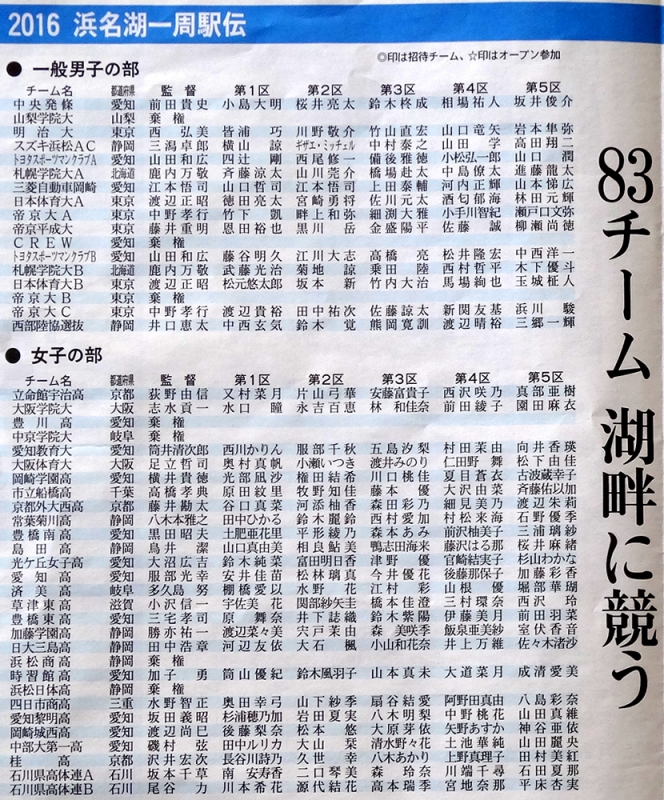 2016 浜名湖一周駅伝
◎印は招待チーム、☆印はオープン参加
● 一般男子の部
チーム名 都道府県 監督 第1区 第2区 第3区 第4区 第5区
中央発條 愛知 前田貴史 小島大明 桜井亮太 鈴木柊成 相場祐人 坂井俊介
山梨学院大 山梨 棄権
明治大 東京 西弘美 皆浦巧 川野敬介 竹山直宏 山口竜矢 岩本隼弥
スズキ浜松AC 静岡 三潟卓郎 横山諒 ギザエ・ミッチェル 中村泰之 山田学 高田翔二
トヨタスポーツマンクラブA 愛知 山田和広 四辻剛 西尾修一 備後雅徳 小松弘一郎 山口潤
札幌学院大A 北海道 鹿内万敬 斉藤涼太 山川莞介 橋場赴太 中島僚太 進藤龍太
三菱自動車岡崎 愛知 江本悟司 山口哲司 江本悟司 上田泰輔 河内正輝 山本悌広
日本体育大A 東京 渡辺正昭 徳田亮太 宮崎勇将 佐川元太 酒匂郁海 林田元輝
帝京大A 東京 中野孝行 竹下凱 畔上和弥 細渕大雅 小手川智紀 瀬戸口文弥
帝京平成大 東京 藤井重明 恩田裕也 黒川岳 金盛陽平 佐藤誠 柳瀬尚徳
CREW 愛知 棄権
トヨタスポーツマンクラブB 愛知 山田和広 藤谷明久 江川大志 高橋亮 松井隆宏 中西洋一
札幌学院大B 北海道 鹿内万敬 武藤光治 菊地諒 乗田陸 西村哲平 木下優斗
日本体育大B 東京 渡辺正昭 松元悠太郎 坂本新 竹内大治 馬場絢也 玉城柾人
帝京大B 東京 棄権
帝京大C 東京 中野孝行 渡辺貴裕 田中祐次 佐藤諒太 新関友基 浜川駿
西部陸協選抜 静岡 井口恵太 中西玄気 鈴木覚 熊岡寛訓 渡辺晴裕 三郷一輝
● 女子の部
チーム名 都道府県 監督 第1区 第2区 第3区 第4区 第5区
立命館宇治高 京都 荻野由信 又村菜月 片山弓華 安藤富貴子 西沢咲乃 真部亜樹
大阪学院大 大阪 志水貢一 水口瞳 永吉百恵 林和佳奈 前田綾子 園田麻衣
豊川高 愛知 棄権
中京学院大 岐阜 棄権
愛知教育大 愛知 筒井清次郎 西川かりん 服部千秋 五島汐梨 村田茉由 向井香瑛
大阪体育大 大阪 足立哲司 奥村真帆 小瀬いつき 渡井みのり 仁田野舞 松下由佳
岡崎学園高 愛知 横井貴徳 光部凪沙 権田結希 川口桃佳 夏目蒼衣 古波蔵幸子
市立船橋高 千葉 高橋孝典 原田紋里 牧野知佳 藤本優 大沢由菜 斉藤佑以加
京都外大西高 京都 藤井勘太 谷口真菜 河添柚香 森田彩乃 細見美乃 渡辺朱莉
常葉菊川高 静岡 八木本雅之 田中ひかる 鈴木麗鈴 西村愛加 村松来海 石野優季
豊橋南高 愛知 黒田昭夫 土肥亜花里 平形綾乃 森本あみ 前沢柚美子 三浦璃紗
島田高 静岡 鳥井潔 山口真由美 相良鮎美 鴨志田海来 藤沢はる那 桜井麻緒
光ケ丘女子高 愛知 大沼広吉 鈴木純菜 富田明日香 津野優 宮崎結実子 杉山わかな
愛知高 愛知 服部光幸 安井佳苗 松林璃真 今井優花 後藤那保子 加藤彩香
済美高 岐阜 多久島努 棚橋愛以 水野花 江村彩 山根優 堀部華瑚
草津東高 滋賀 小沢信一 宇佐美花 関部紗矢圭 橋本佳澄 三村環奈 西沢玲
豊橋東高 愛知 三宅孝司 原舞奈 井下誌織 鈴木紫陽 伊藤美月 前田羽菜
加藤学園高 静岡 勝亦祐一 渡辺菜々美 宍戸茉由 森美咲季 飯泉亜美紗 室伏香音
日大三島高 静岡 田中浩章 河辺友依 大石楓 小山和花奈 井上万維 佐々木渚沙
浜松商高 静岡 棄権
時習館高 愛知 加子勇 筒山優紀 鈴木風羽子 山本真未 大道菜月 成清愛美
浜松日体高 静岡 棄権
四日市商高 三重 水野智正 奥田幸弓 山下紗季 扇谷結愛 阿野田真由 八島彩奈
愛知黎明高 愛知 坂田義昭 杉浦穂乃加 岩田夏実 八木明梨 中野桃花 山田真維
岡崎城西高 愛知 渡辺尚巳 後藤梨奈 松本悠 大原芽依 矢野あすか 神谷亜依
中部大第一高 愛知 磯村弦 田中ルリカ 大山栞 清水野々花 土池華純 山田麗央
桂高 京都 沢井宏次 長谷川詩乃 久世幸 八木あかり 上野真理子 田村美紅
石川県高体連A 石川 坂本千草 南安寿香 二口琴美 森玲奈 川端千尋 石田夏那
石川県高体連B 石川 尾谷力 川本希花 源代結花 高本瑞季 宮地奈那 平床杏実
83チーム 湖畔に競う